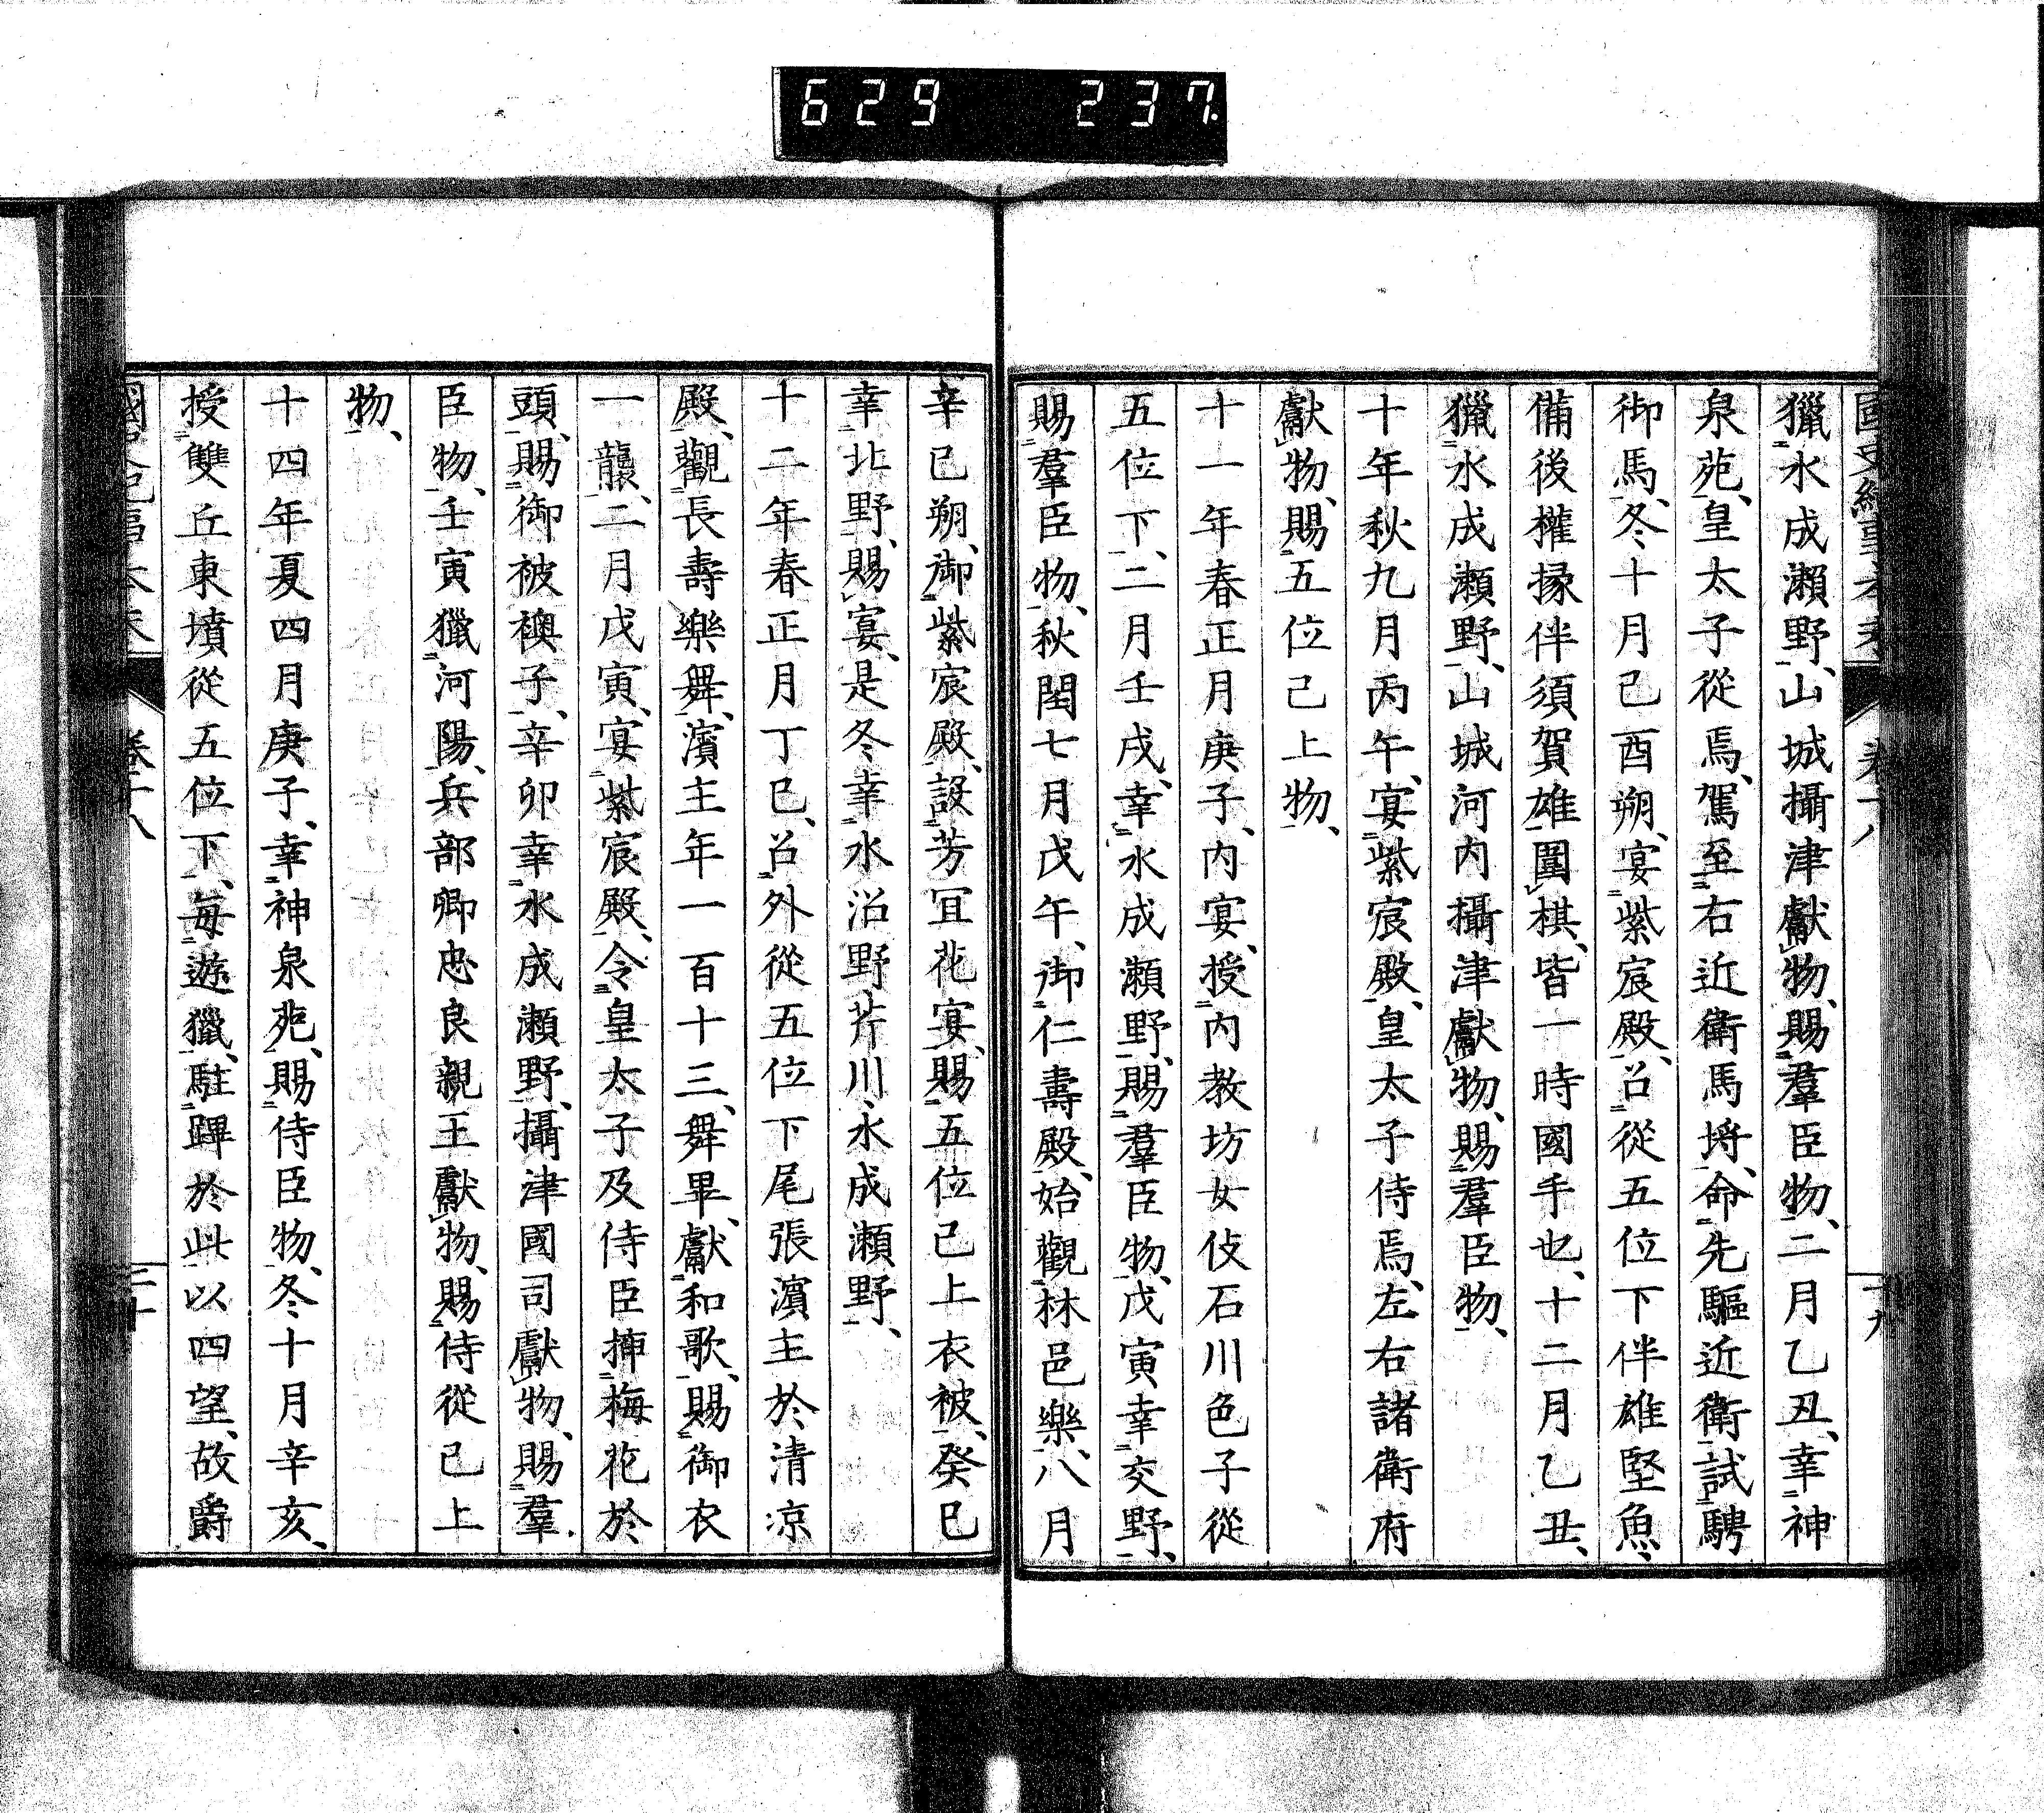 629 237.
獵水成瀨野、山城攝津獻物、賜羣臣物、二月乙丑、幸神
泉苑、皇太子從焉、駕至右近衛馬埒、命先驅近衛試騁
御馬、冬十月己酉朔、宴紫宸殿、召從五位下伴雄堅魚、
備後權掾伴須賀雄圍棋、皆一時國手也、十二月乙丑、
獵水成瀨野、山城河內攝津獻物、賜羣臣物、
十年秋九月丙午、宴紫宸殿、皇太子侍焉、左右諸衛府
獻物、賜五位己上物、
十一年春正月庚子、內宴、授內教坊女伎石川色子從
五位下、二月壬戌、幸水成瀨野、賜羣臣物、戊寅幸交野、
賜羣臣物、秋閏七月戊午、御仁壽殿、始觀林邑樂、八月
辛巳朔、御紫宸殿、設芳宜花宴、賜五位己上衣被、癸巳
幸北野、賜宴、是冬幸水沼野、芹川、水成瀨野、
十二年春正月丁巳、召外從五位下尾張濱主於清涼
殿、觀長壽樂舞、濱主年一百十三、舞畢、獻和歌、賜御衣
一襲、二月戊寅、宴紫宸殿、令皇太子及侍臣揷梅花於
頭、賜御被襖子、辛卯幸水成瀨野、攝津國司獻物、賜羣
臣物、壬寅獵河陽、兵部卿忠良親王獻物、賜侍從己上
物、
十四年夏四月庚子、幸神泉苑、賜侍臣物、冬十月辛亥、
授雙丘東墳從五位下、每遊獵、駐蹕於此、以四望、故爵
卷十八
二十